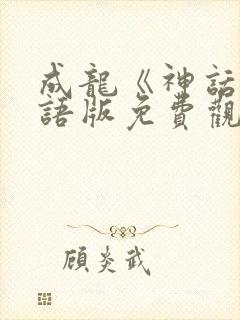 成龍《神話
語版免費觀
顧炎武